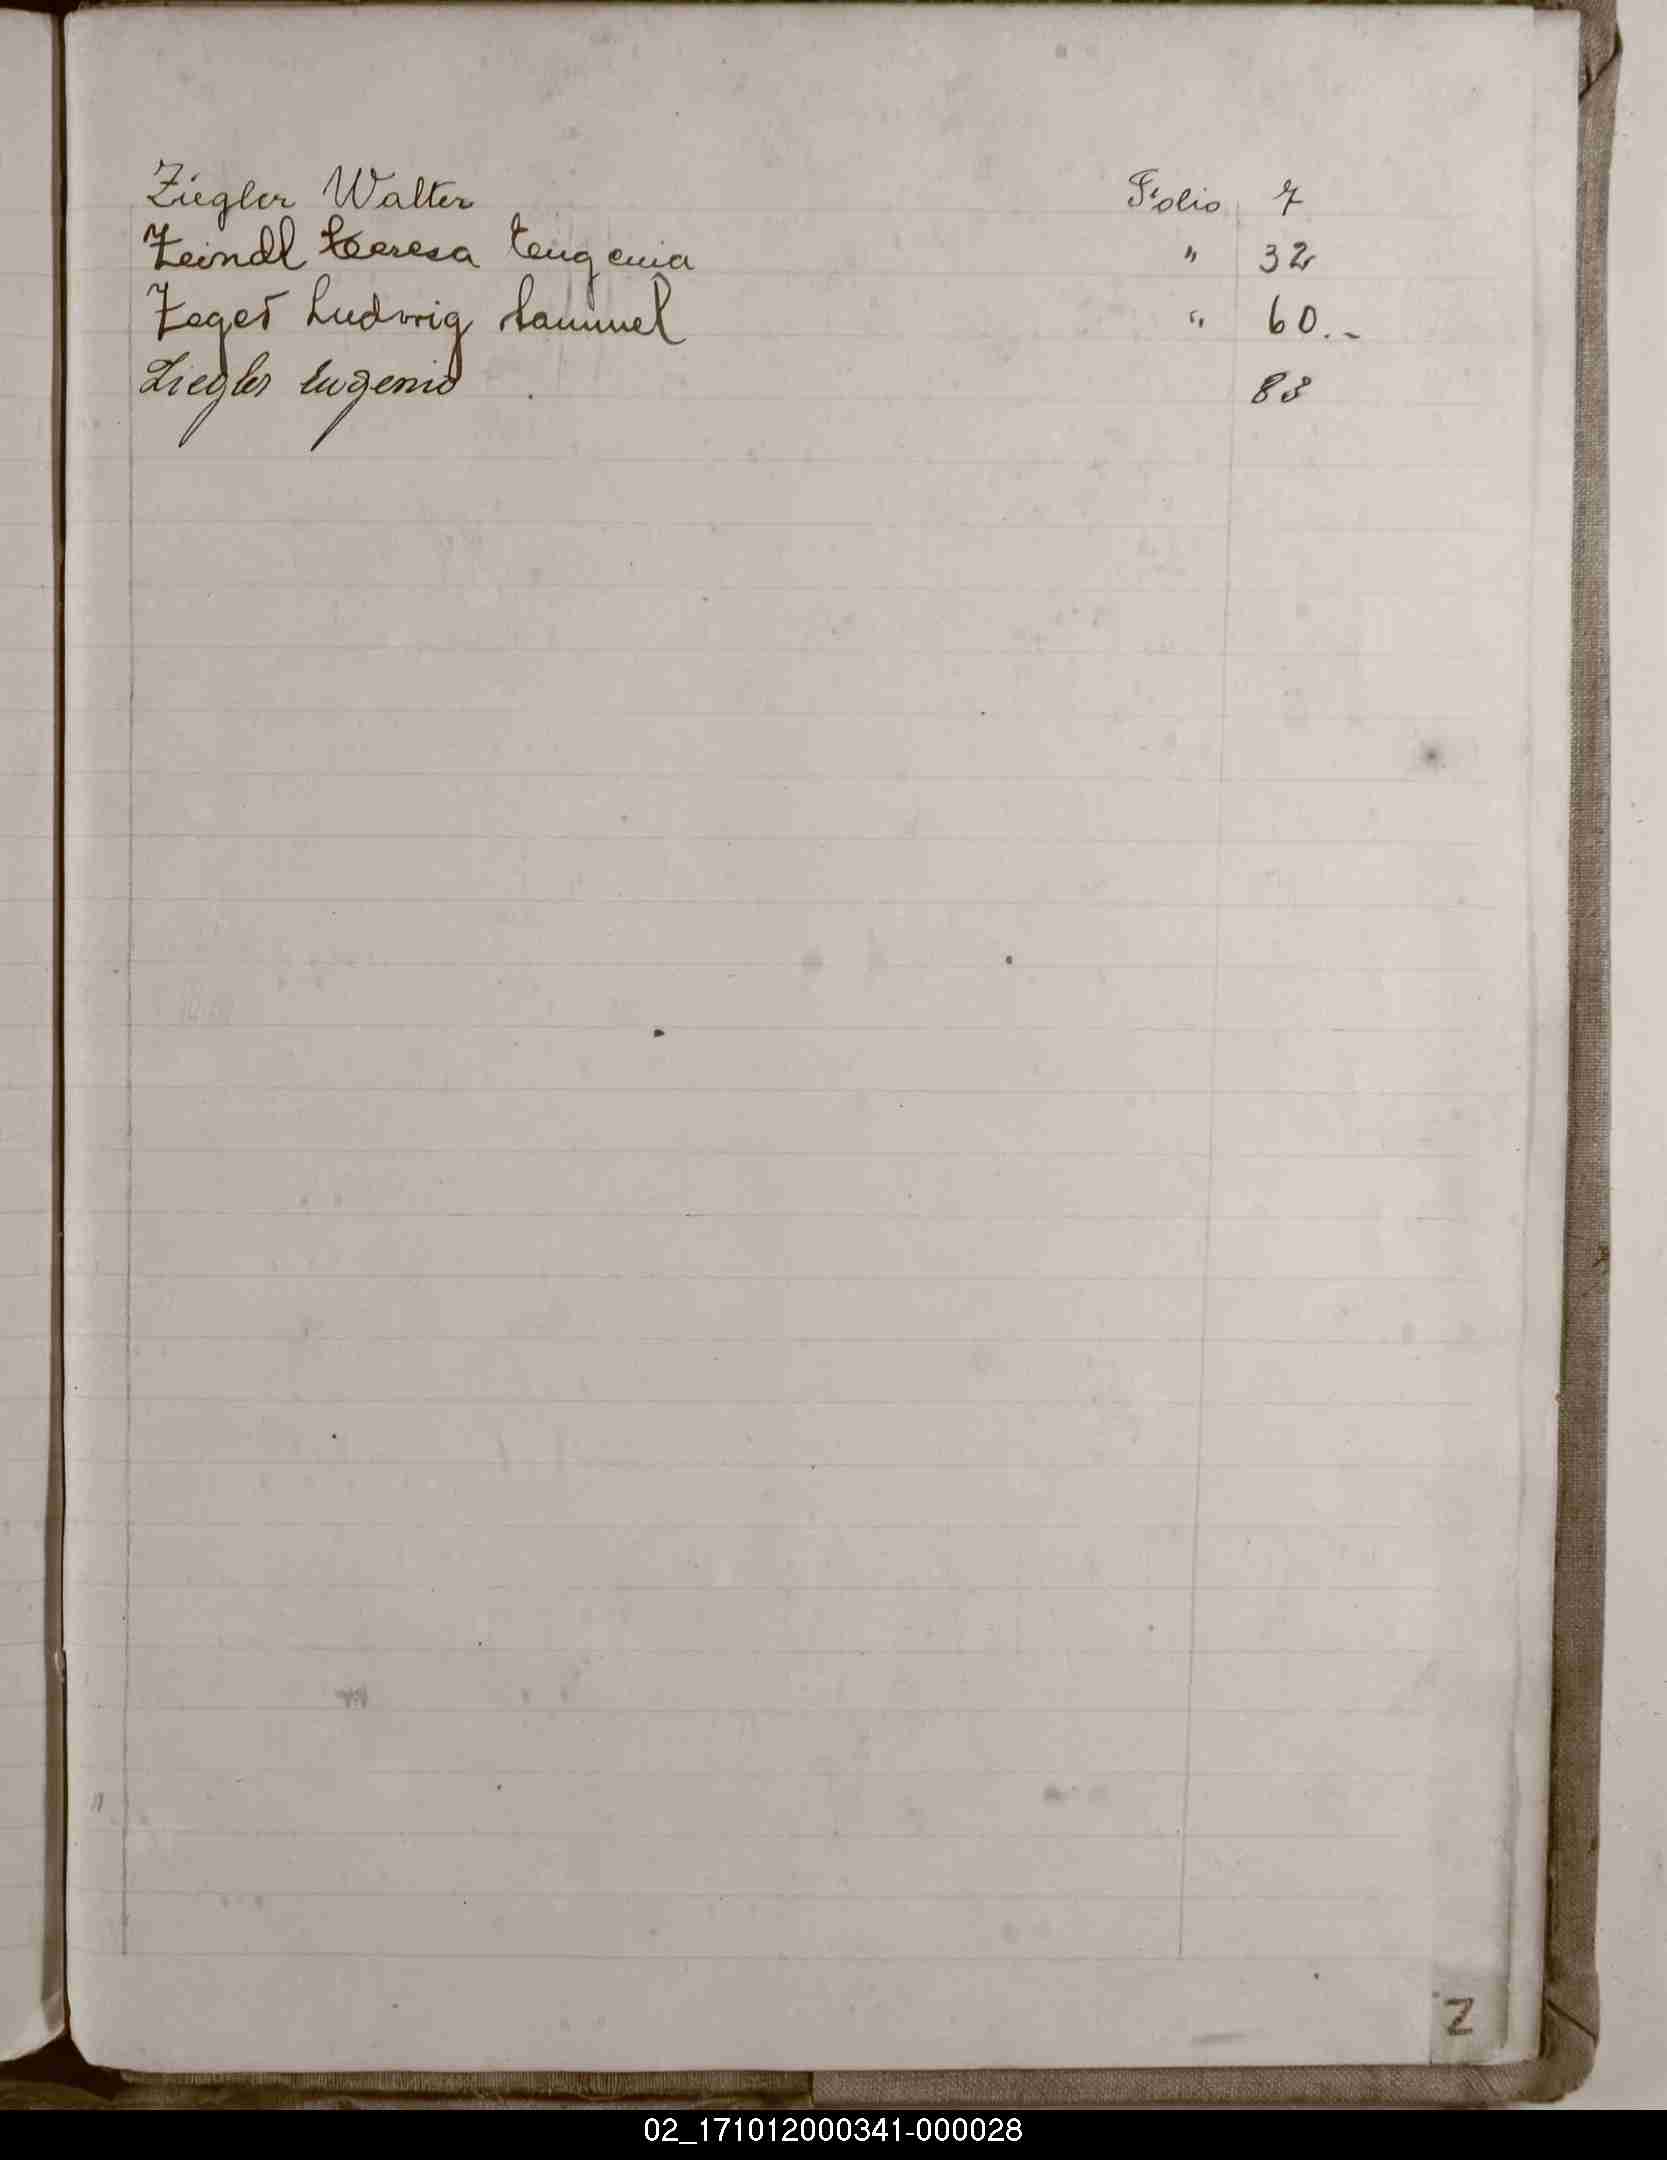 Ziegler Walter Folio 7
Zeindl teresa Eugenia " 32
Zeget Ludwig Samuel " 60.-
Ziegler Eugenio 83
Z
02_171012000341-000028